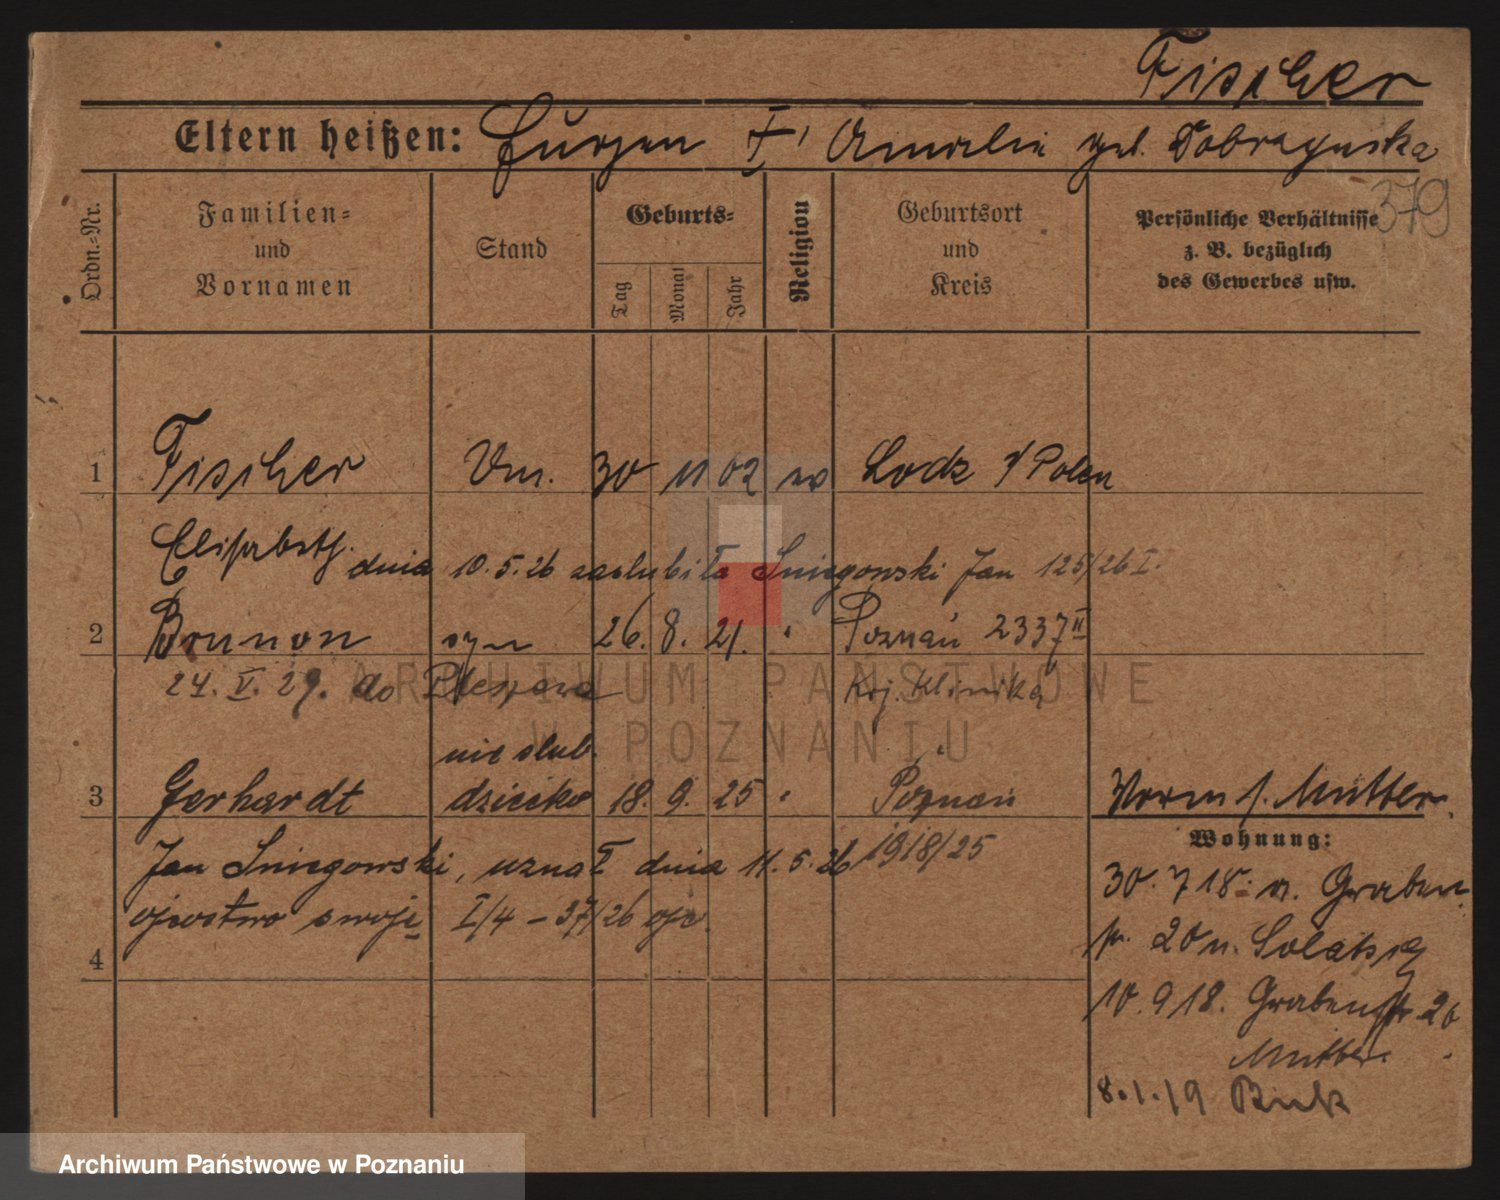 Fischer
Eltern heißen: Eurgen †, Amalie geb. Dobraguska
379
Ordn.-Nr.
Familien-
und
Vornamen
Stand
Geburts-
Tag
Monat
Jahr
Religion
Geburtsort
und
Kreis
Persönliche Verhältnisse
z. B. bezüglich
des Gewerbes usw.
1 Fischer 30 11 02 ev Lodz i/Polen
Elisabeth. dnia 10.5.26 zaślubiła Sniegowski Jan 125/26 I.
2 Brunon syn 26. 8. 21. Poznań 2337 II
24. V. 29. do Pleszewa Krj. Klinika
nieślub.
3 Gerhardt dziecko 18. 9. 25 Poznań
1918/25
Jan Sniegowski, uznał dnia 11.5.26
ojcostwo swoje I/4 – 37/26 ojc.
4
Vorm s. Mutter.
Wohnung:
30. 7 18: v. Graben
str. 20 n. Solatsch
10. 9 18. Grabenstr. 20
Mutter.
8.1.19 Buk
ARCHIWUM PAŃSTWOWE
W POZNANIU
Archiwum Państwowe w Poznaniu